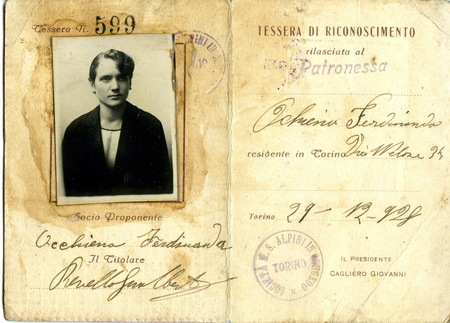 Tessera N. 599
Socio Proponente
Occhiena Ferdinanda
Il Titolare
TESSERA DI RICONOSCIMENTO
rilasciata al
Patronessa
Ferdinanda
residente in Torino Via
Torino 29-12-928
SOCIETÀ M. S. ALPINI IN CONGEDO
TORINO
IL PRESIDENTE
CAGLIERO GIOVANNI